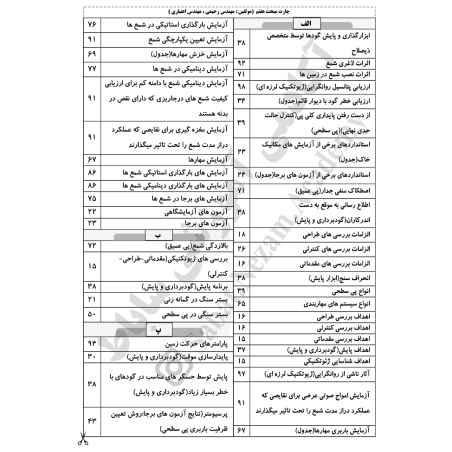 چارت مبحث هفتم (مولفین : مهندس رحیمی ، مهندس اعتباری )
الف
ابزارگذاری و پایش گودها توسط متخصص ذیصلاح ۳۸
اثرات لاغری شمع ۹۲
اثرات نصب شمع در زمین ها ۷۱
ارزیابی پتانسیل روانگرایی(ژیوتکنیک لرزه ای) ۹۸
ارزیابی خطر گود با دیوار قائم(جدول) ۳۴
از دست رفتن پایداری کلی پی(کنترل حالت حدی نهایی)(پی سطحی) ۳۹
استانداردهای برخی از آزمایش های مکانیک خاک(جدول) ۲۳
استانداردهای برخی از آزمون های برجا(جدول) ۲۴
اصطکاک منفی جدار(پی عمیق) ۷۱
اطلاع رسانی به موقع به دست اندرکاران(گودبرداری و پایش) ۳۸
الزامات بررسی های طراحی ۱۸
الزامات بررسی های کنترلی ۲۶
الزامات بررسی های مقدماتی ۱۶
انحراف سنج(ابزار پایش) ۳۸
انواع پی سطحی ۳۹
انواع سیستم های مهاربندی ۶۵
اهداف بررسی طراحی ۱۶
اهداف بررسی کنترلی ۱۶
اهداف بررسی مقدماتی ۱۵
اهداف پایش(گودبرداری و پایش) ۳۷
اهداف شناسایی ژئوتکنیکی ۱۵
آثار ناشی از روانگرایی(ژیوتکنیک لرزه ای) ۹۷
آزمایش امواج صوتی عرضی برای نقایصی که عملکرد دراز مدت شمع را تحت تاثیر میگذارند ۹۱
آزمایش باربری مهارها(جدول) ۶۷
آزمایش بارگذاری استاتیکی در شمع ها ۷۶
آزمایش تعیین یکپارچگی شمع ۹۱
آزمایش خزش مهارها(جدول) ۶۹
آزمایش دینامیکی در شمع ها ۷۷
آزمایش دینامیکی شمع با دامنه کم برای ارزیابی کیفیت شمع های درجاریزی که دارای نقص در بدنه هستند ۹۱
آزمایش مغزه گیری برای نقایصی که عملکرد دراز مدت شمع را تحت تاثیر میگذارند ۹۱
آزمایش مهارها ۶۷
آزمایش های بارگذاری استاتیکی شمع ها ۸۶
آزمایش های بارگذاری دینامیکی شمع ها ۸۶
آزمایش های برجا در شمع ها ۷۵
آزمون های آزمایشگاهی ۲۲
آزمون های برجا ۲۳
ب
بالازدگی شمع(پی عمیق) ۷۲
بررسی های ژیوتکنیکی(مقدماتی-طراحی-کنترلی) ۱۵
برنامه پایش(گودبرداری و پایش) ۳۸
بستر سنگ در گمانه زنی ۲۱
بستر سنگی در پی سطحی ۵۰
پ
پارامترهای حرکت زمین ۹۴
پایدارسازی موقت(گودبرداری و پایش) ۳۰
پایش توسط حسگر های مناسب در گودهای با خطر بسیار زیاد(گودبرداری و پایش) ۳۸
پرسیومتر(نتایج آزمون های برجا:روش تعیین ظرفیت باربری پی سطحی) ۴۳